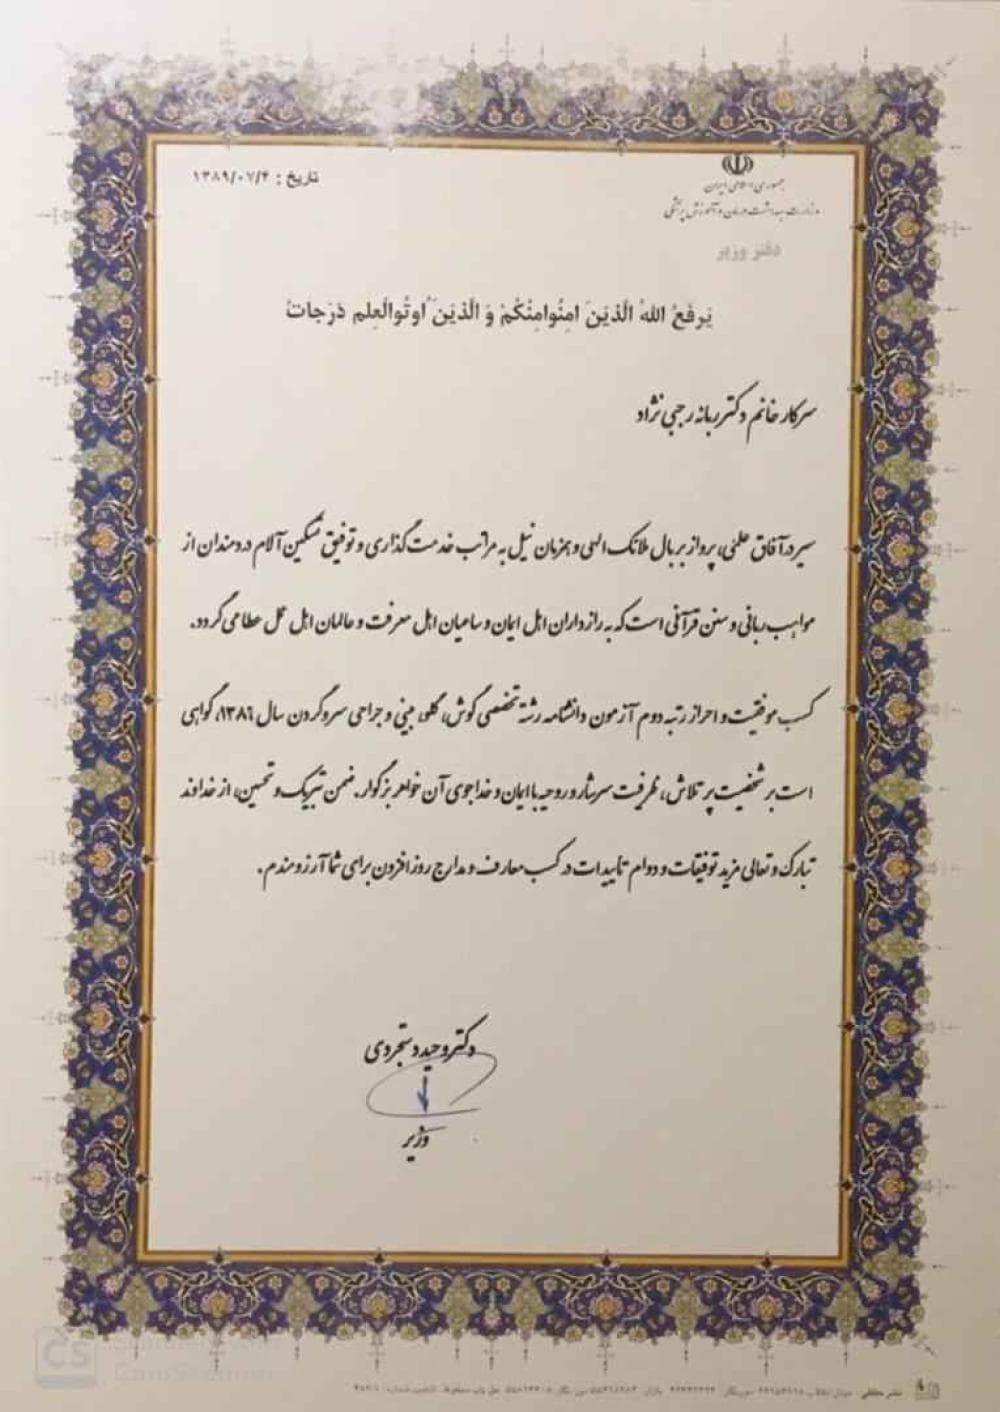 جمهوری اسلامی ایران
وزارت بهداشت درمان و آموزش پزشکی
دفتر وزیر
تاریخ : ۱۳۸۹/۰۷/۴
يَرفَعُ اللهُ الَّذينَ امِنُوامِنْكُمْ وَ الَّذينَ اُوتُوالْعِلم دَرَجاتُ
سرکار خانم دکتر ریانه رجبی نژاد
سیر در آفاق علمی، پرواز بر بال ملائک الهی و همزمان نیل به مراتب خدمت گذاری و توفیق تسکین آلام دردمندان از
مواهب ربانی و سنن قرآنی است که به رازداران اهل ایمان و ساعیان اهل معرفت و عالمان اهل عمل عطا می گردد.
کسب موفقیت و احراز رتبه دوم آزمون دانشنامه رشته تخصصی گوش، گلو، بینی و جراحی سر و گردن سال ۱۳۸۹، گواهی
است بر شخصیت پر تلاش، ظرفیت سرشار و روحیه با ایمان و خداجوی آن خواهر بزرگوار. ضمن تبریک و تحسین، از خداوند
تبارک و تعالی مزید توفیقات و دوام تاییدات در کسب معارف و مدارج روز افزون برای شما آرزومندم.
دکتر وحید دستجردی
وزیر
CS
CamScanner